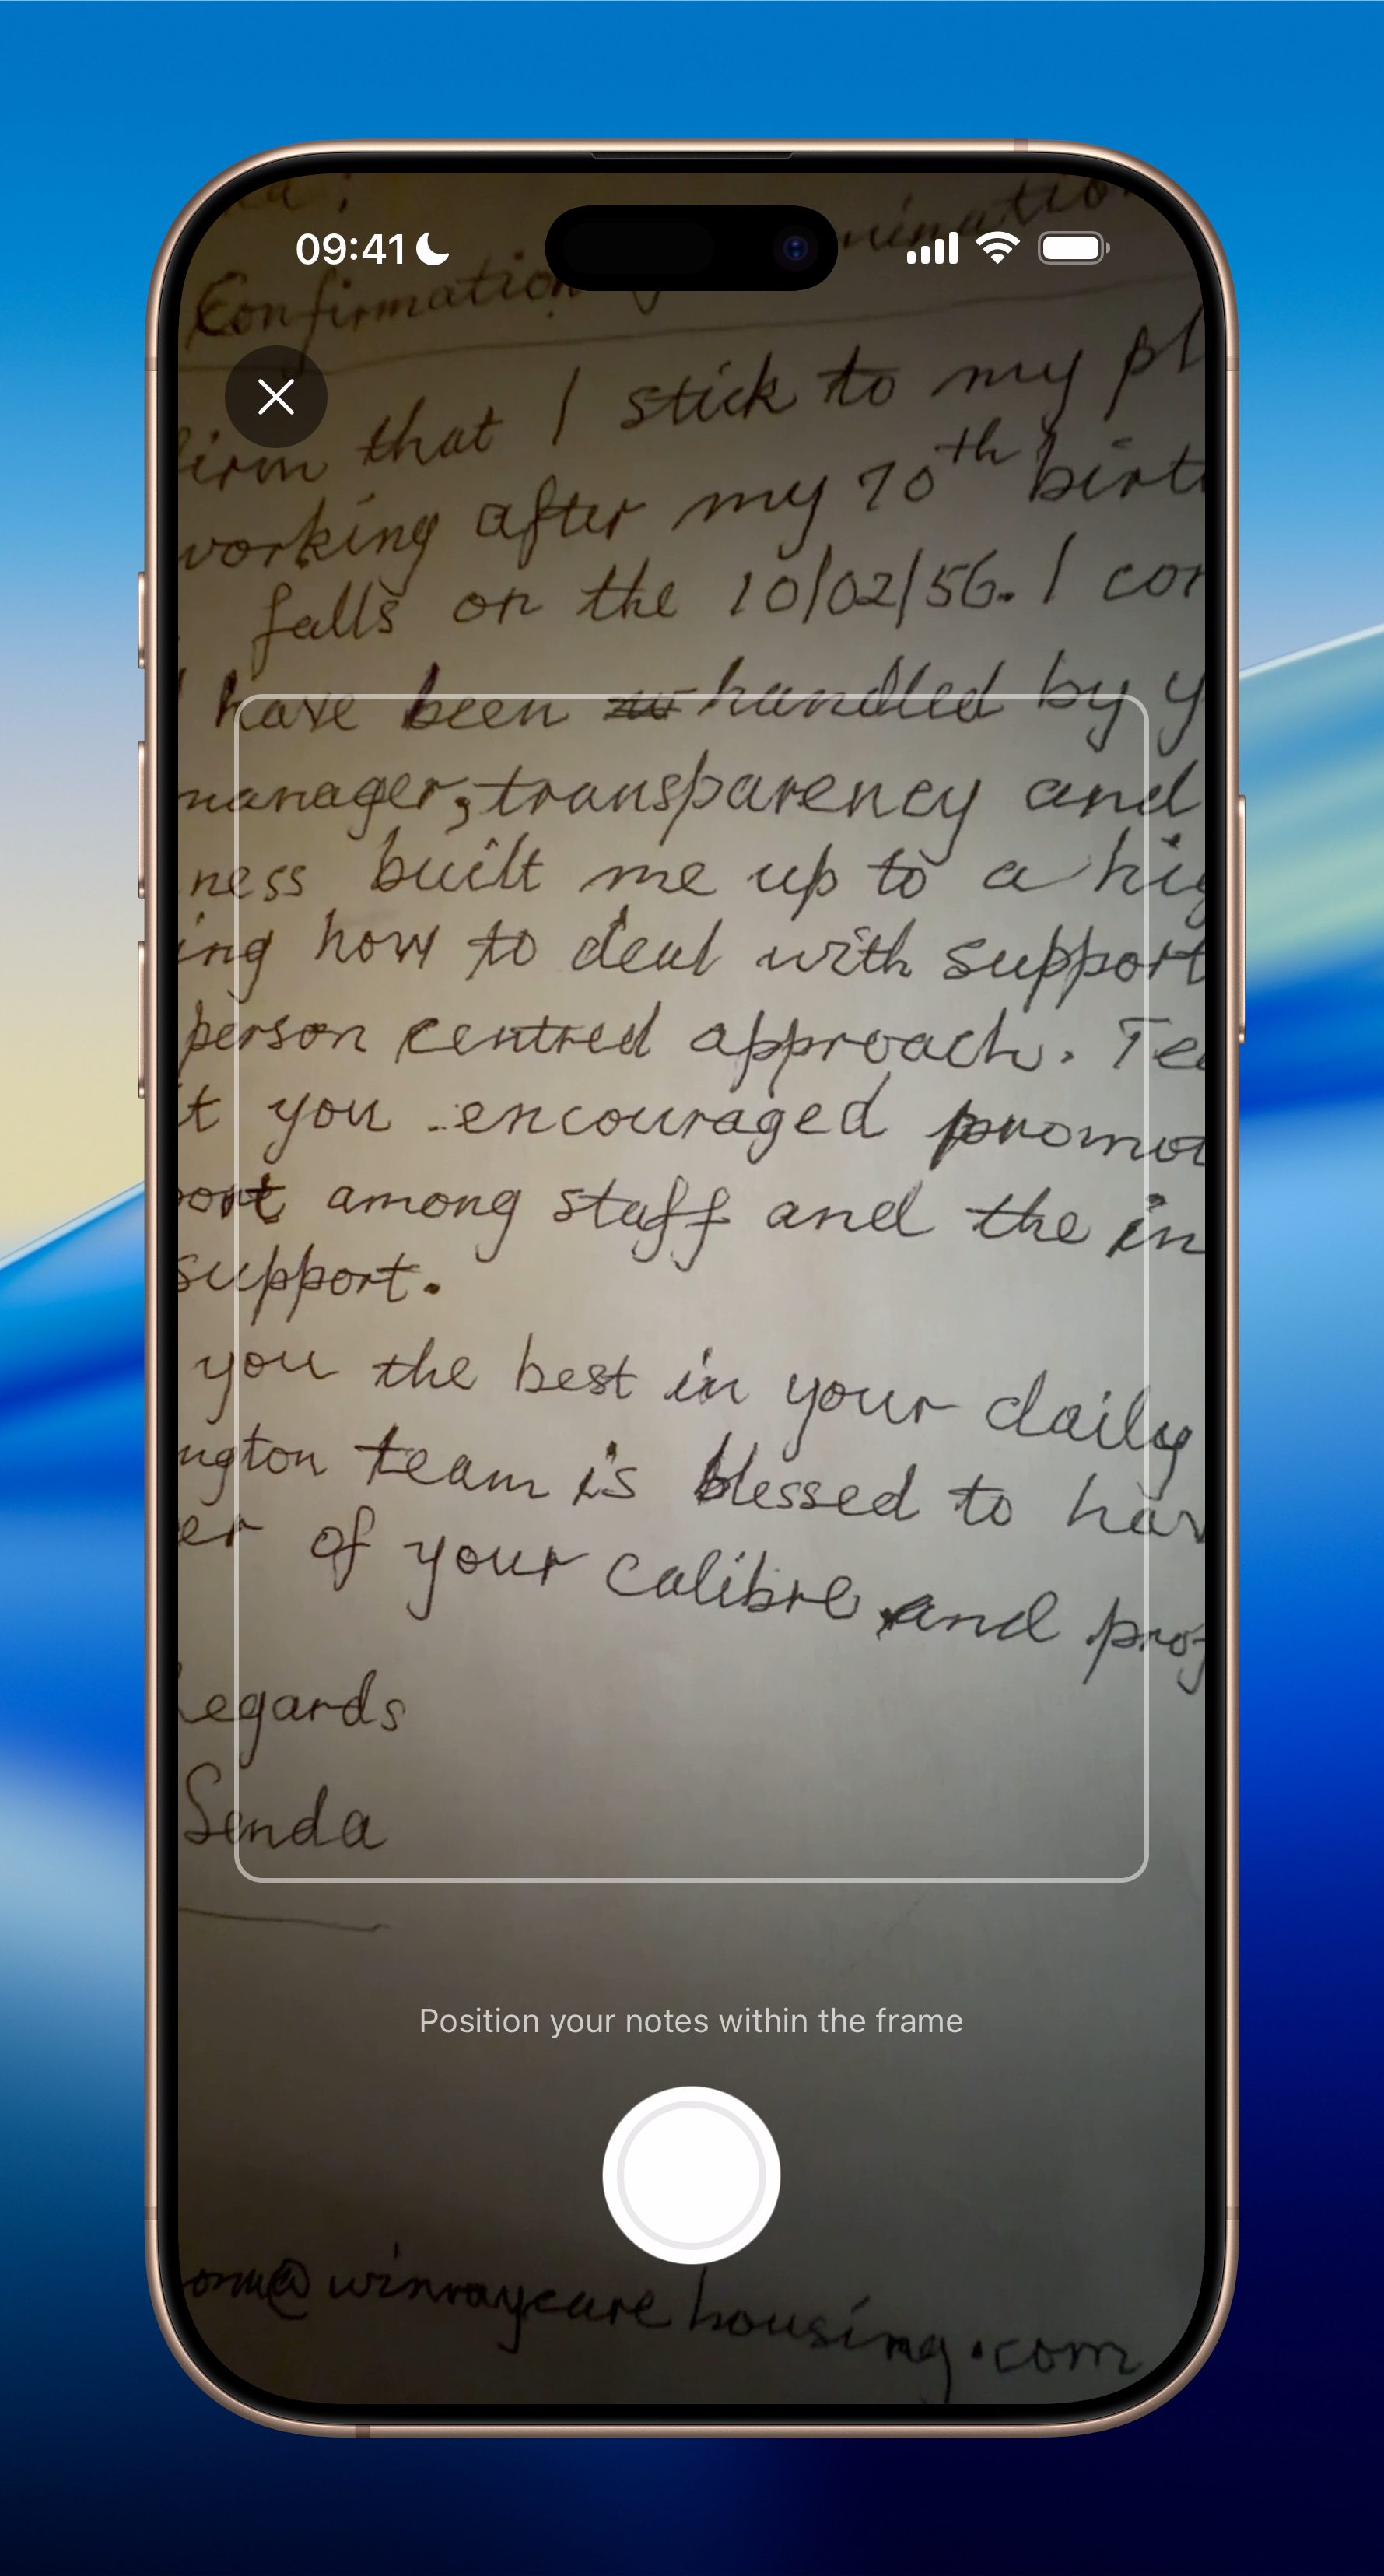 09:41
Confirmation
firm that I stick to my pl
working after my 70th birt
falls on the 10/02/56. I con
have been handled by y
manager, transparency and
ness built me up to a hig
ing how to deal with support
person centred approach. Te
t you encouraged promot
port among staff and the in
support.
you the best in your daily
ngton team is blessed to hav
er of your calibre and prof
Regards
Senda
Position your notes within the frame
@winraycarehousing.com